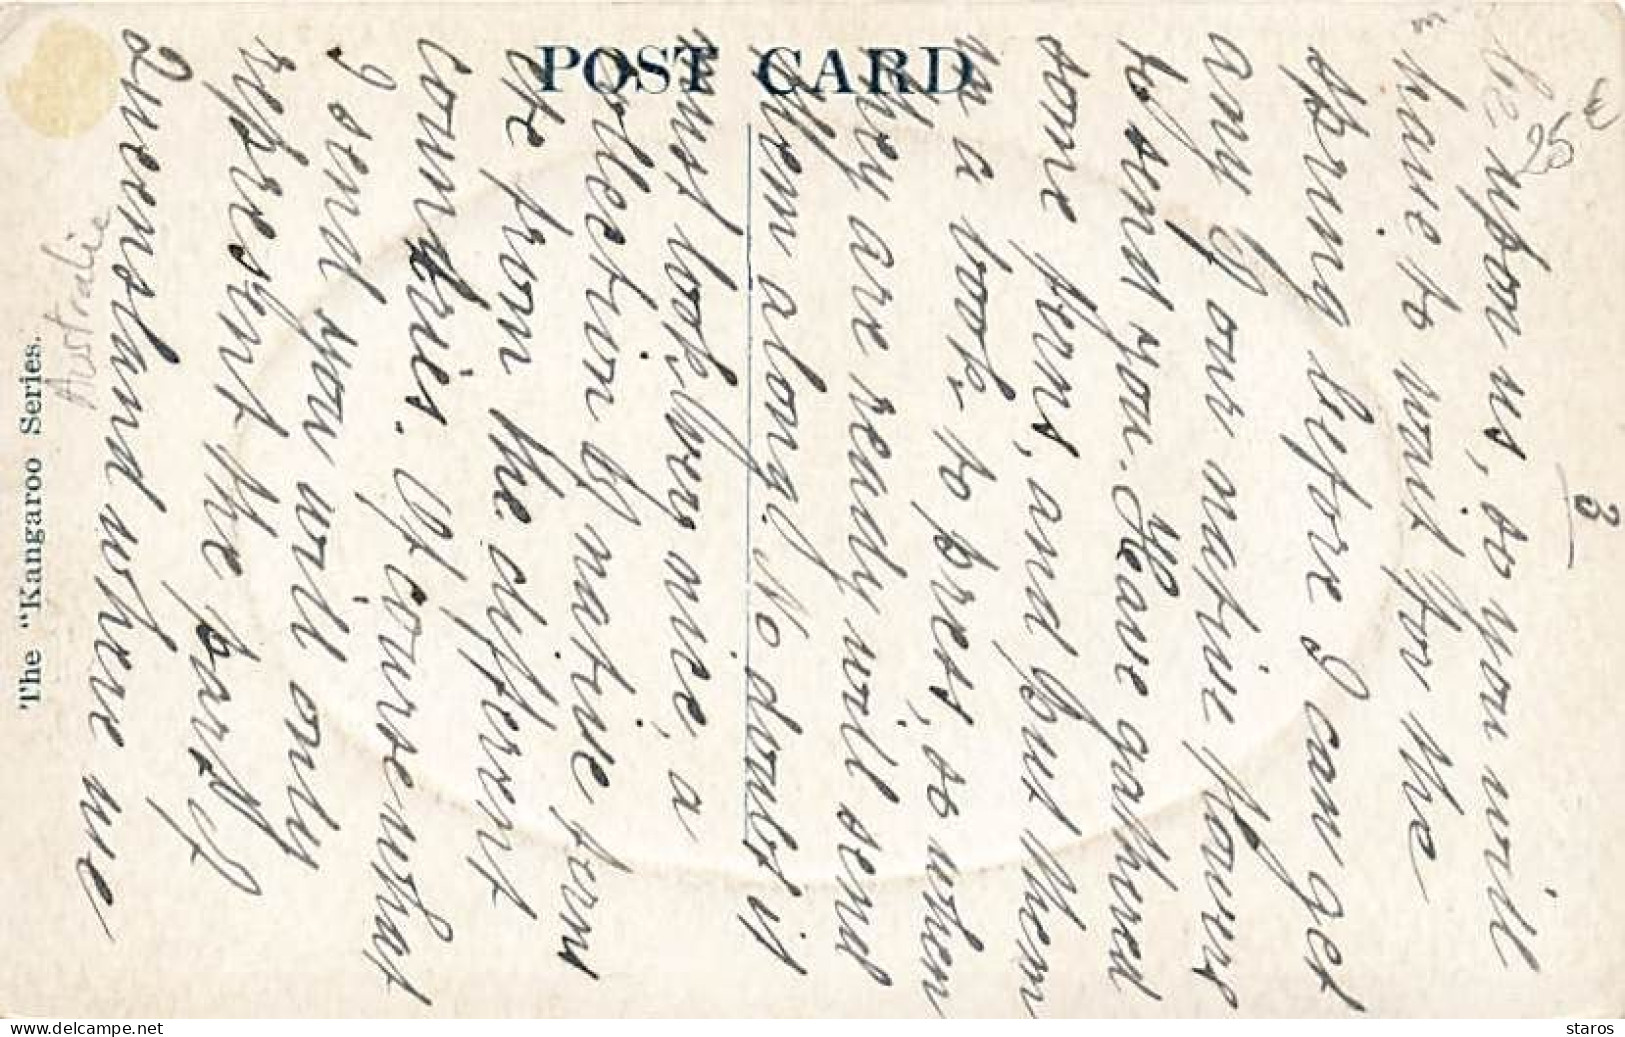 POST CARD
The "Kangaroo Series.
Australie
25
3
be upon us, so you will
have to wait for the
spring before I can get
any of our native flowers
to send you. Have gathered
some ferns, and put them
in a book to press, so when
they are ready will send
them along. No doubt it
must look very nice, a
collection of native fern
etc from the different
countries. Of course what
I send you will only
represent the part of
Queensland where we
www.delcampe.net
staros